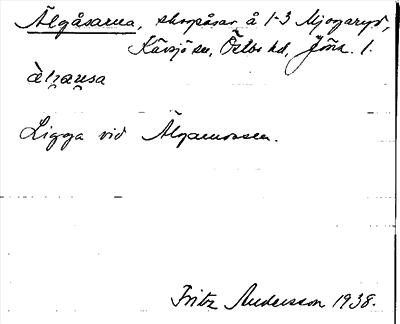 Älgåsarna, skogsåsar å 1-3 Mjogaryd,
Kävsjö sn, Östbo hd, Jönk. l.
Ligga vid Älgamossen.
Fritz Andersson 1938.